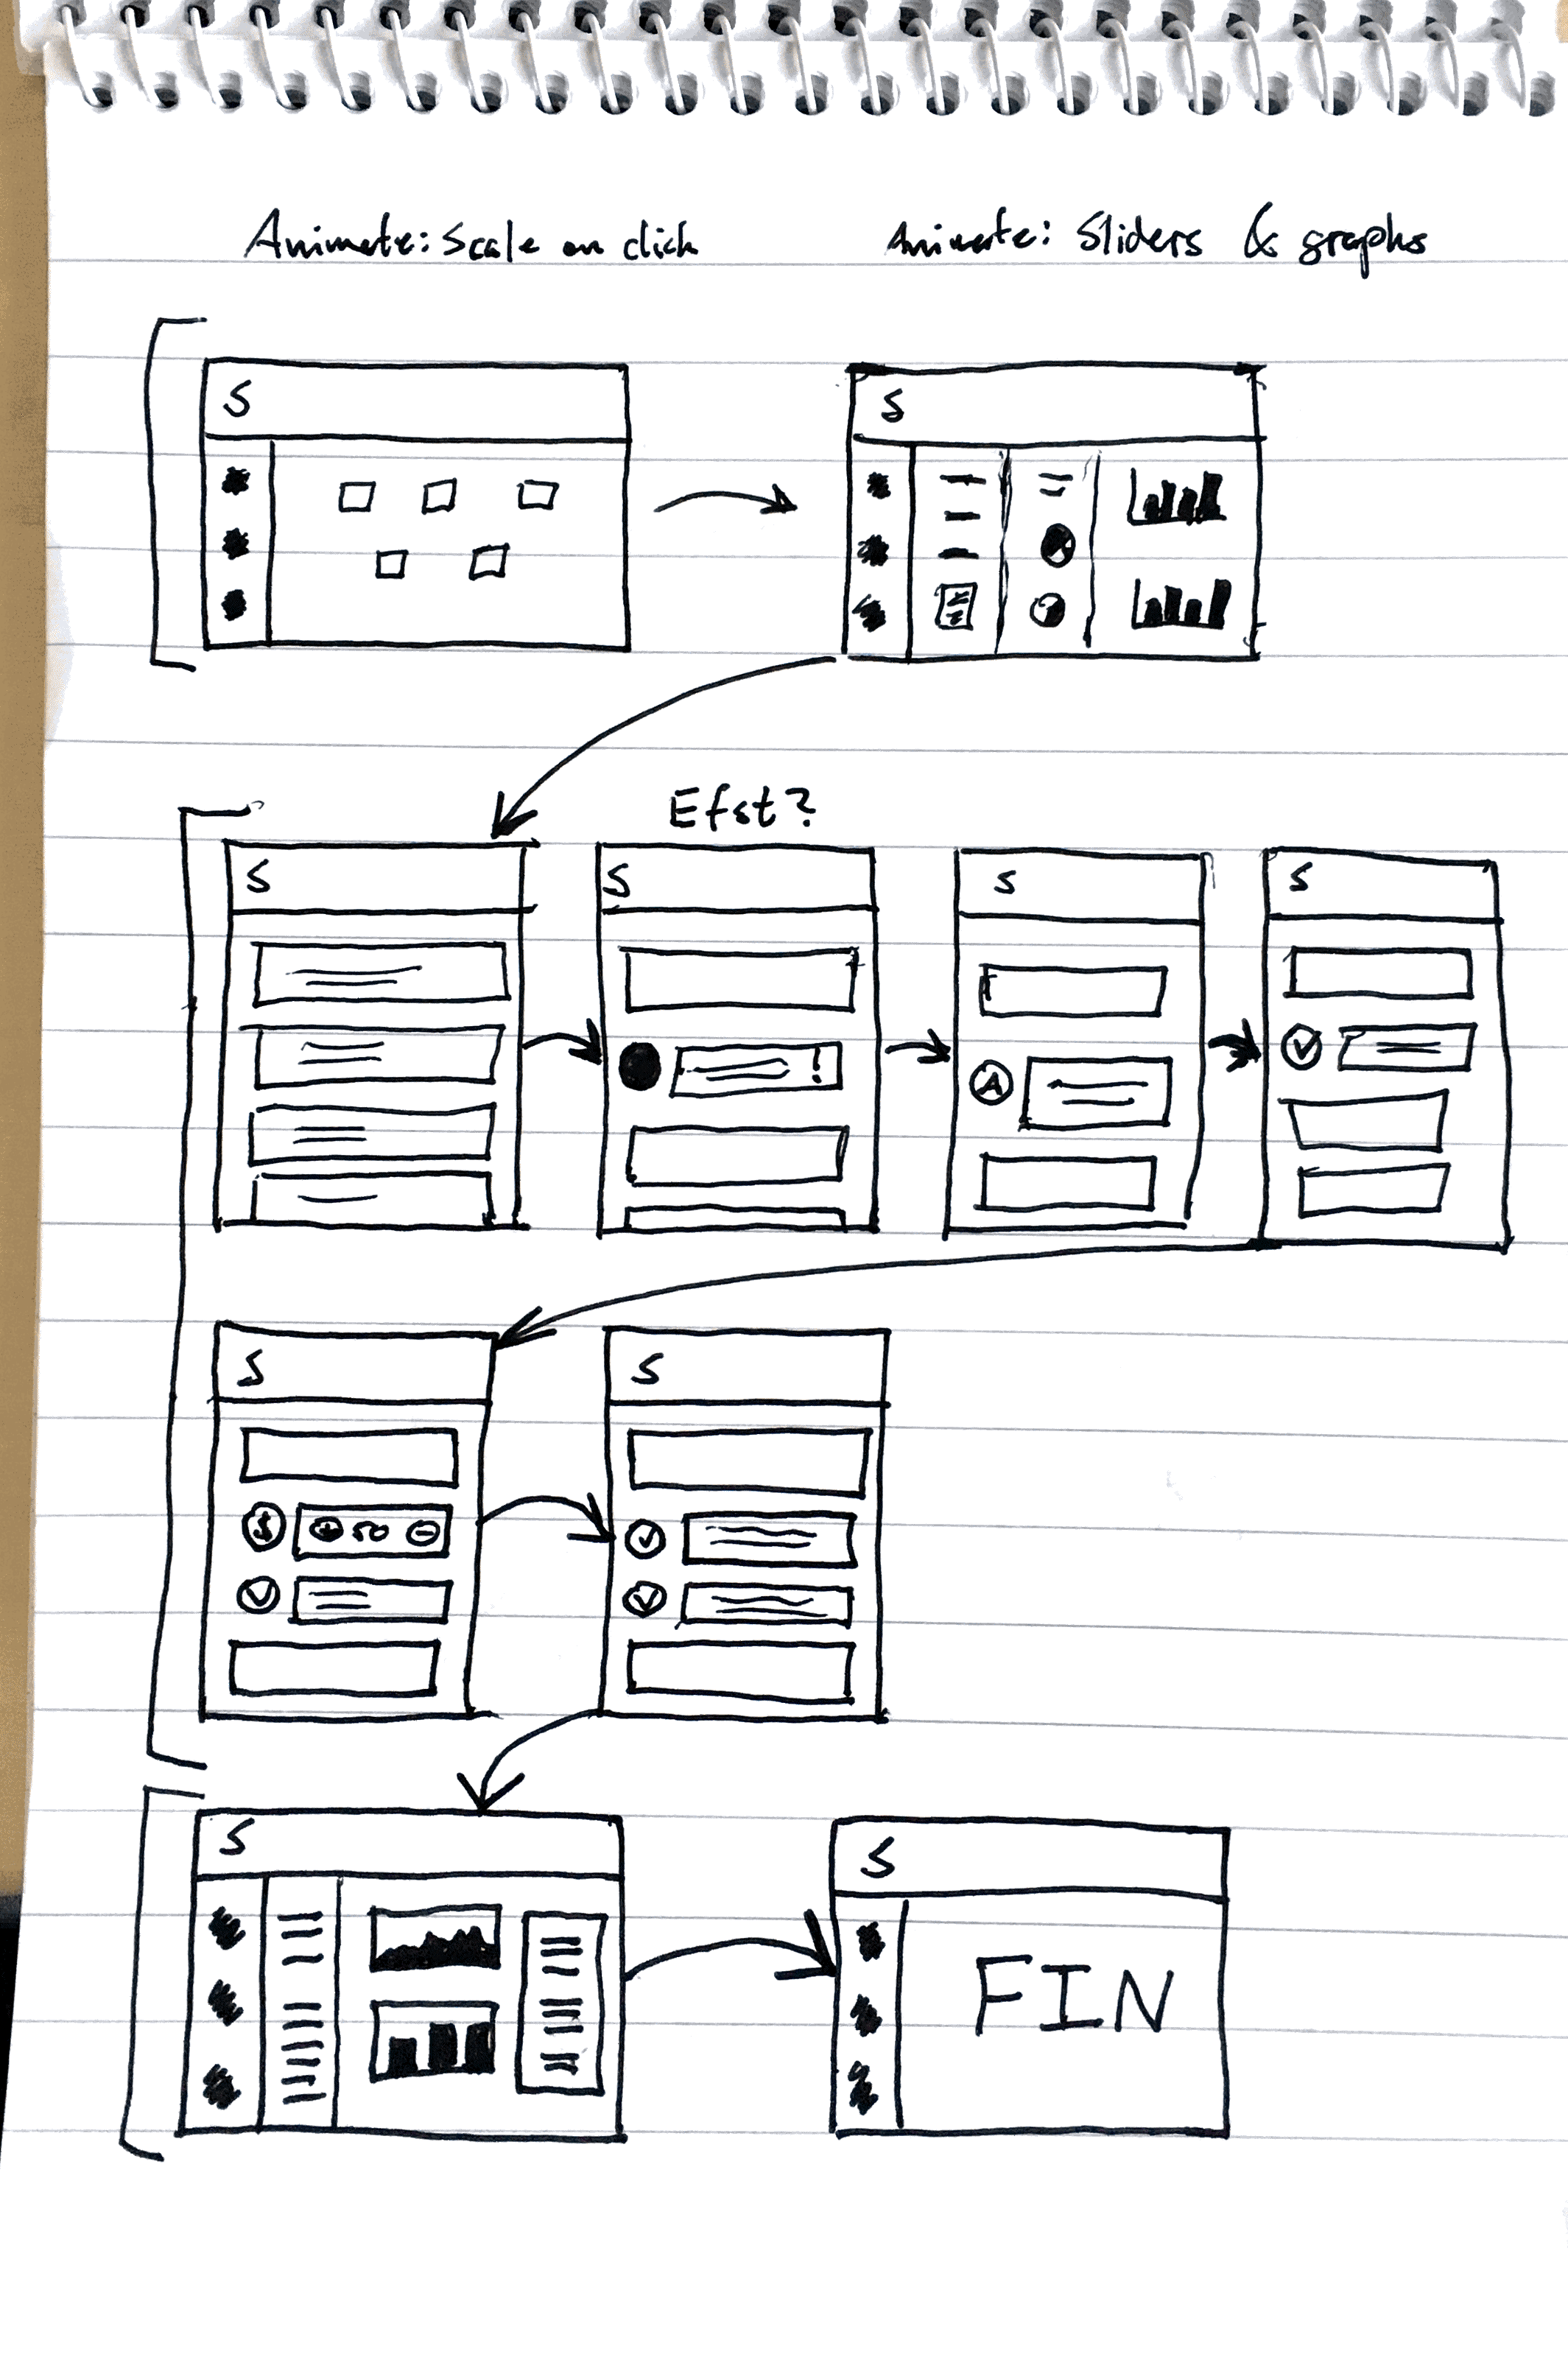 Animate: Scale on click
Animate: Sliders & graphs
S
S
Efst?
S
S
S
S
A
S
S
$ + 50 −
S
S
FIN